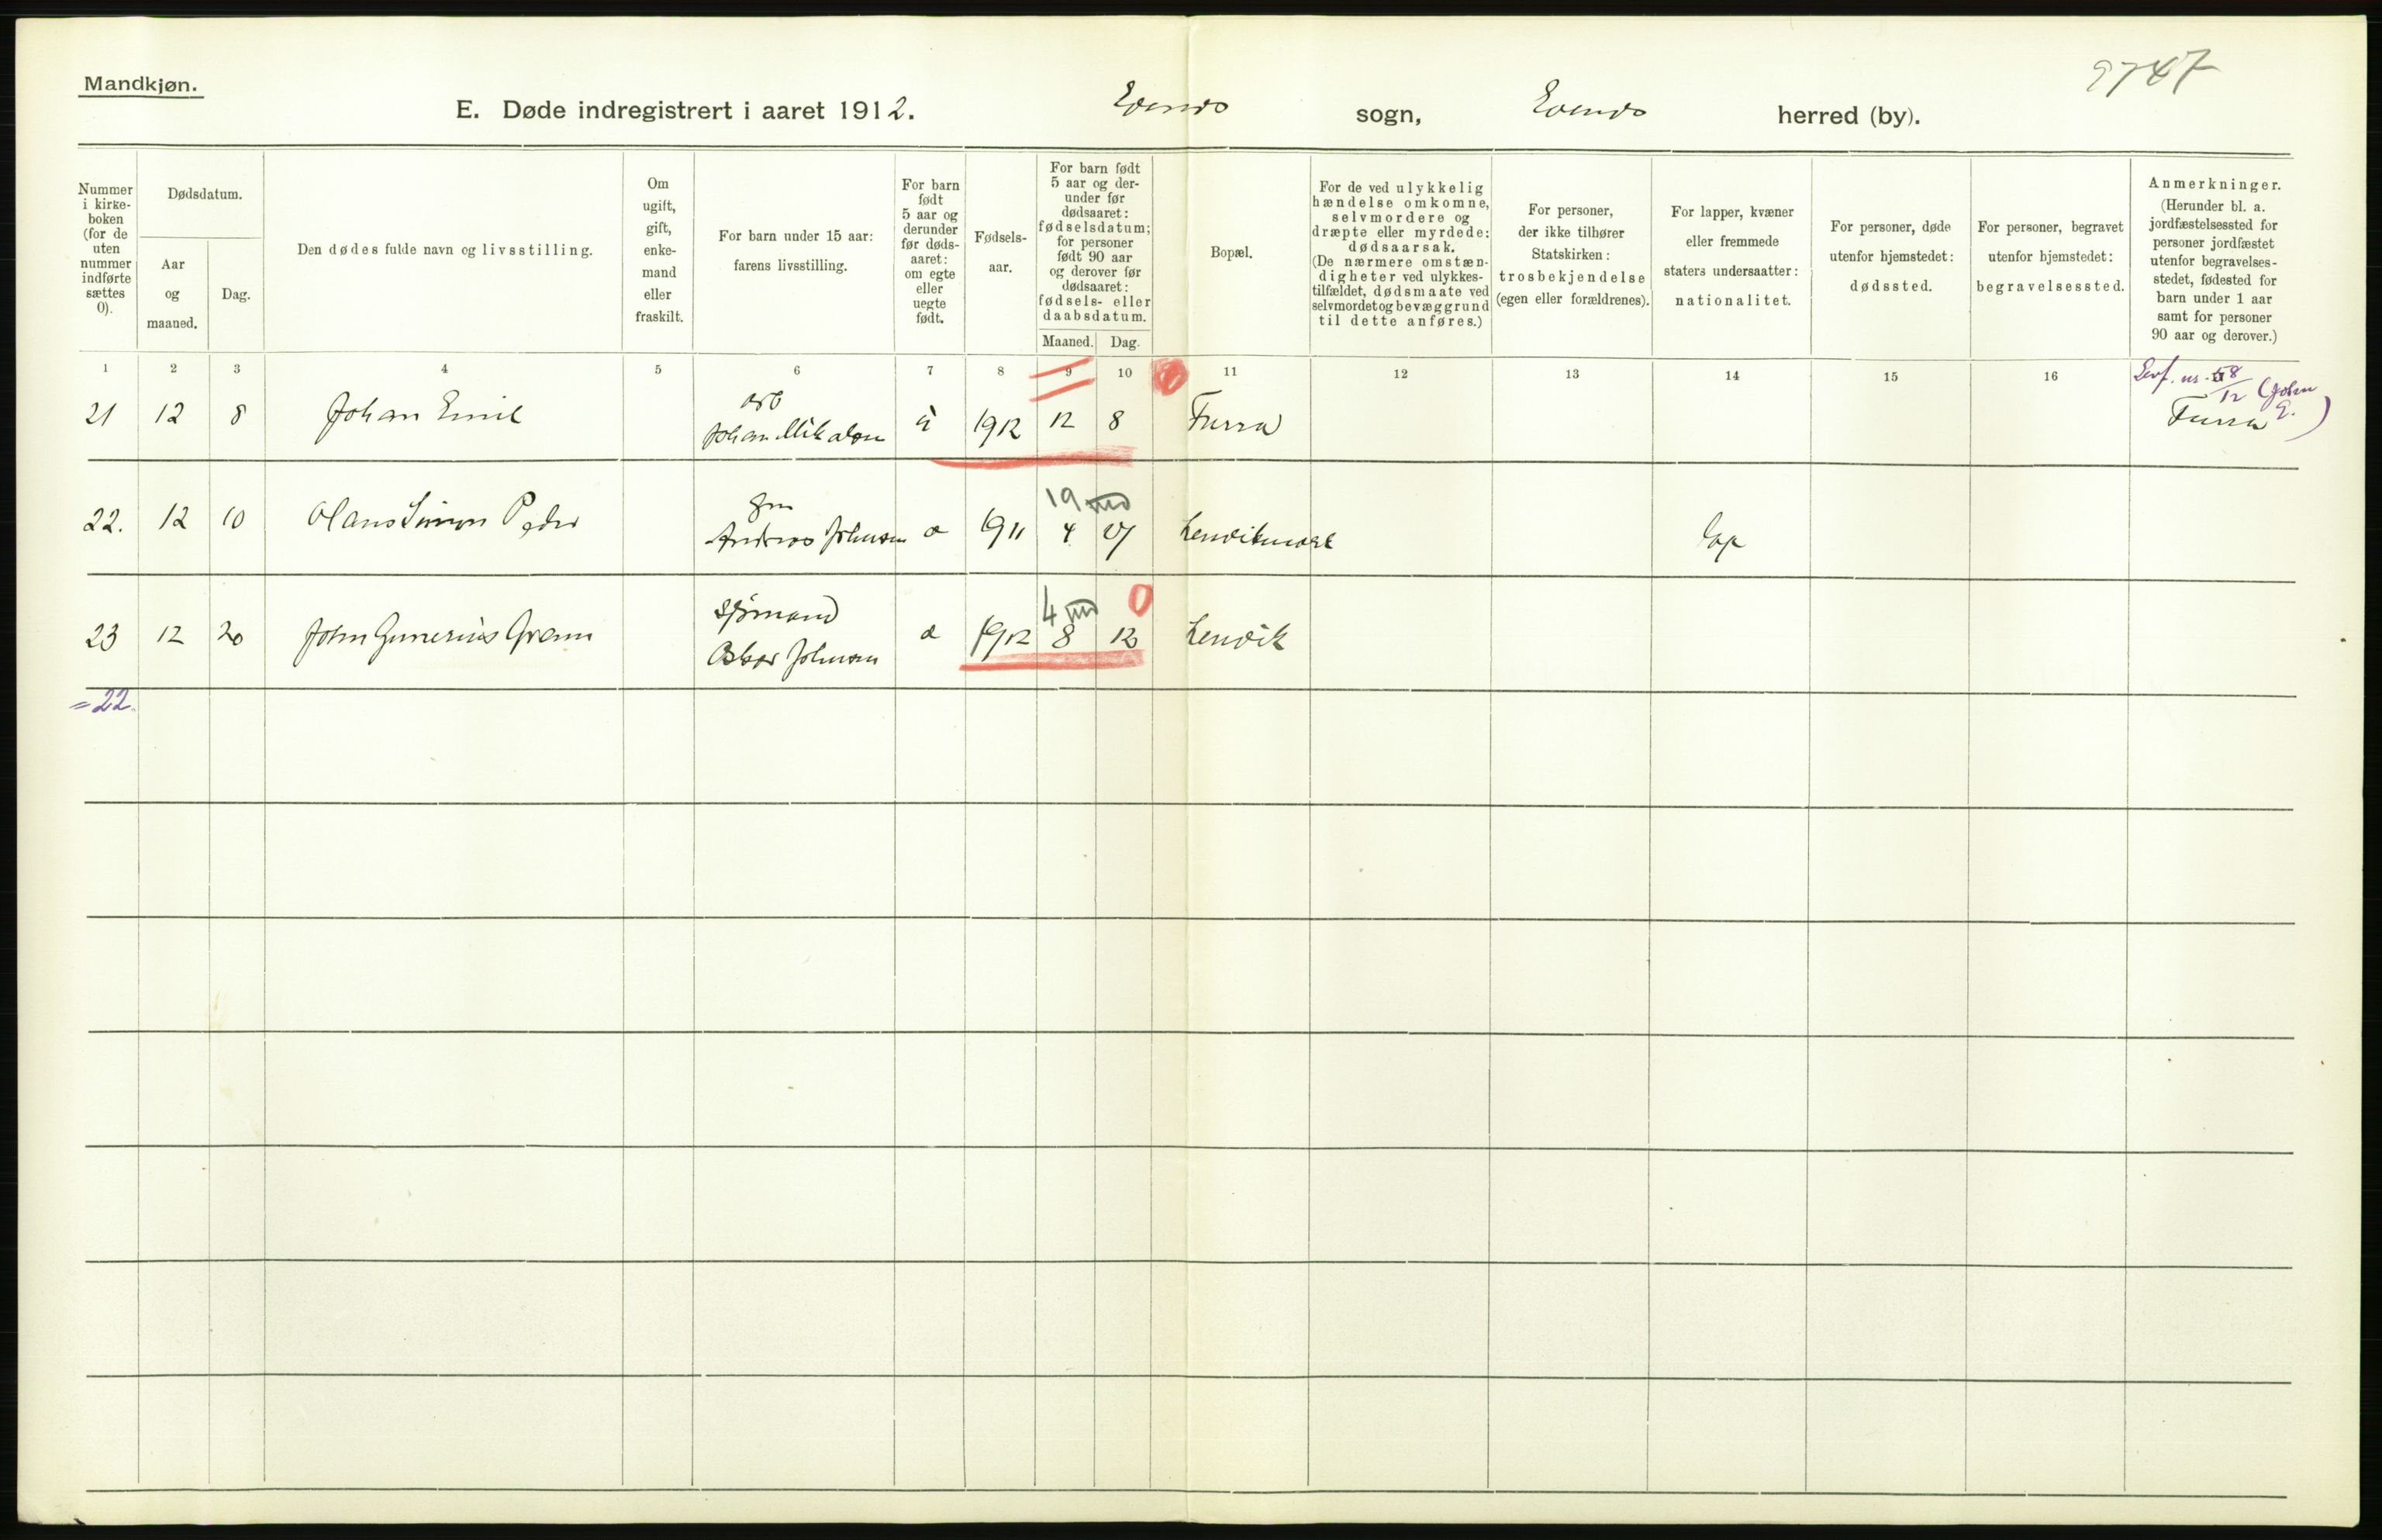 Mandkjøn.
9747
E. Døde indregistrert i aaret 1912. Evenes sogn, Evenes herred (by).
Nummer
i kirke-
boken
(for de
uten
nummer
indførte
sættes
0).
Dødsdatum.
Aar
og
maaned.
Dag.
Den dødes fulde navn og livsstilling.
Om
ugift,
gift,
enke-
mand
eller
fraskilt.
For barn under 15 aar:
farens livsstilling.
For barn
født
5 aar og
derunder
før døds-
aaret:
om egte
eller
uegte
født.
Fødsels-
aar.
For barn født
5 aar og der-
under før
dødsaaret:
fødselsdatum;
for personer
født 90 aar
og derover før
dødsaaret:
fødsels- eller
daabsdatum.
Maaned.
Dag.
Bopæl.
For de ved ulykkelig
hændelse omkomne,
selvmordere og
dræpte eller myrdede:
dødsaarsak.
(De nærmere omstæn-
digheter ved ulykkes-
tilfældet, dødsmaate ved
selvmordet og bevæggrund
til dette anføres.)
For personer,
der ikke tilhører
Statskirken:
trosbekjendelse
(egen eller forældrenes).
For lapper, kvæner
eller fremmede
staters undersaatter:
nationalitet.
For personer, døde
utenfor hjemstedet:
dødssted.
For personer, begravet
utenfor hjemstedet:
begravelsessted.
Anmerkninger.
(Herunder bl. a.
jordfæstelsessted for
personer jordfæstet
utenfor begravelses-
stedet, fødested for
barn under 1 aar
samt for personer
90 aar og derover.)
1 2 3 4 5 6 7 8 9 10 11 12 13 14 15 16
Levf. nr. 58
12 (John
E.)
arb
21 12 8 Johan Emil Johan Mikalsen 1912 12 8 Furra Furra
19 md
22. 12 10 Hans Simon Peder Andreas Johnsen a 1911 4 Lenvikmark lap
4 md 0
sjømand
23 12 20 John Gunerius Gram Oskar Johnsen a 1912 8 12 Lenvik
=22.